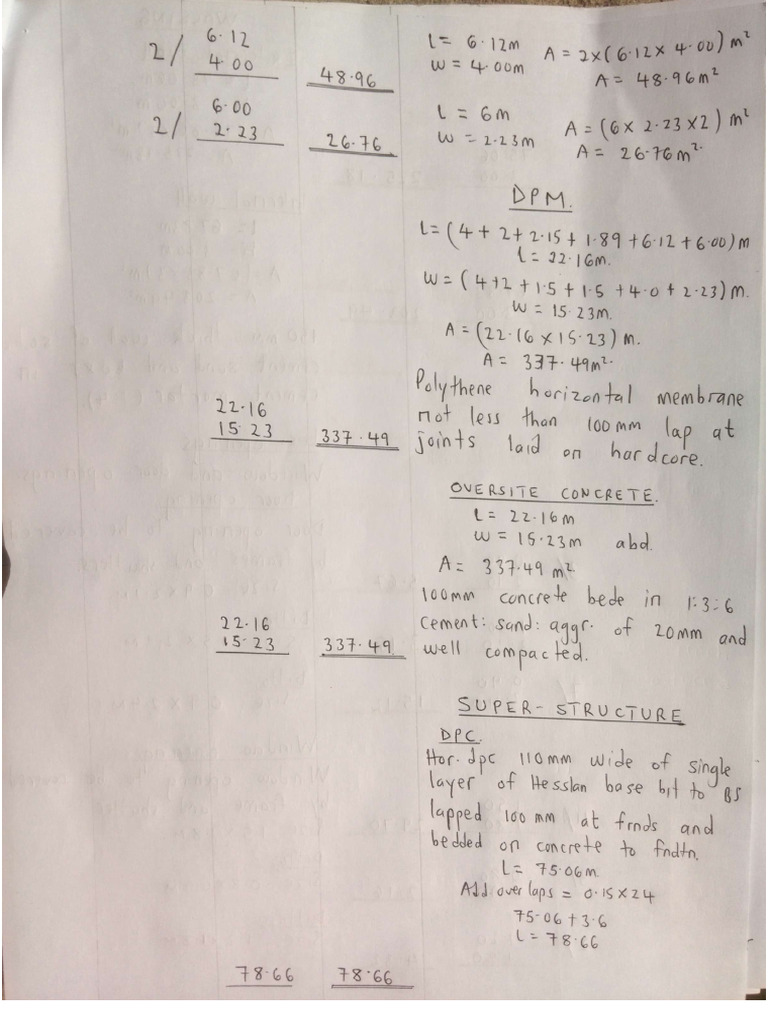 2/ 6.12
4.00 48.96
L = 6.12m A = 2x(6.12 x 4.00) m²
W = 4.00m A = 48.96m²
2/ 6.00
2.23 26.76
L = 6m A = (6 x 2.23 x 2) m²
W = 2.23m A = 26.76m².
DPM.
L = (4 + 2 + 2.15 + 1.89 + 6.12 + 6.00) m
L = 22.16m.
W = (4+2 + 1.5 + 1.5 + 4.0 + 2.23) m.
W = 15.23m.
A = (22.16 x 15.23) m.
A = 337.49m².
Polythene horizontal membrane
not less than 100mm lap at
joints laid on hardcore.
22.16
15.23 337.49
OVERSITE CONCRETE.
L = 22.16m
W = 15.23m abd.
A = 337.49 m².
100mm concrete bede in 1:3:6
cement: sand: aggr. of 20mm and
well compacted.
22.16
15.23 337.49
SUPER-STRUCTURE
DPC.
Hor. dpc 110mm wide of single
layer of Hessian base bit to BS
lapped 100 mm at frnds and
bedded on concrete to fndtn.
L = 75.06m.
Add over laps = 0.15 x 24
75.06 + 3.6
L = 78.66
78.66 78.66